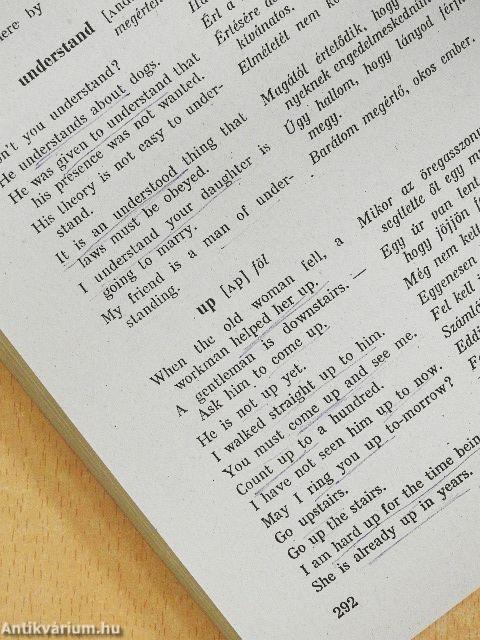 ere by
understand [ʌndə
megérteni
n't you understand?
He understands about dogs.
He was given to understand that
his presence was not wanted.
His theory is not easy to under-
stand.
It is an understood thing that
laws must be obeyed.
I understand your daughter is
going to marry.
My friend is a man of under-
standing.
up [ʌp] föl
When the old woman fell, a
workman helped her up.
A gentleman is downstairs. —
Ask him to come up.
He is not up yet.
I walked straight up to him.
You must come up and see me.
Count up to a hundred.
I have not seen him up to now.
May I ring you up to-morrow?
Go upstairs.
Go up the stairs.
I am hard up for the time bein
She is already up in years.
292
Érl a
Értésére
kívánatos.
Elméletét nem kö
Magától értetődik, hogy
nyeknek engedelmeskednün
Úgy hallom, hogy lányod férj
megy.
Barátom megértő, okos ember.
Mikor az öregasszon
segítette őt egy mu
Egy úr van lent
hogy jöjjön f
Még nem kelt
Egyenesen
Fel kell
Számlá
Eddi
Antikvárium.hu